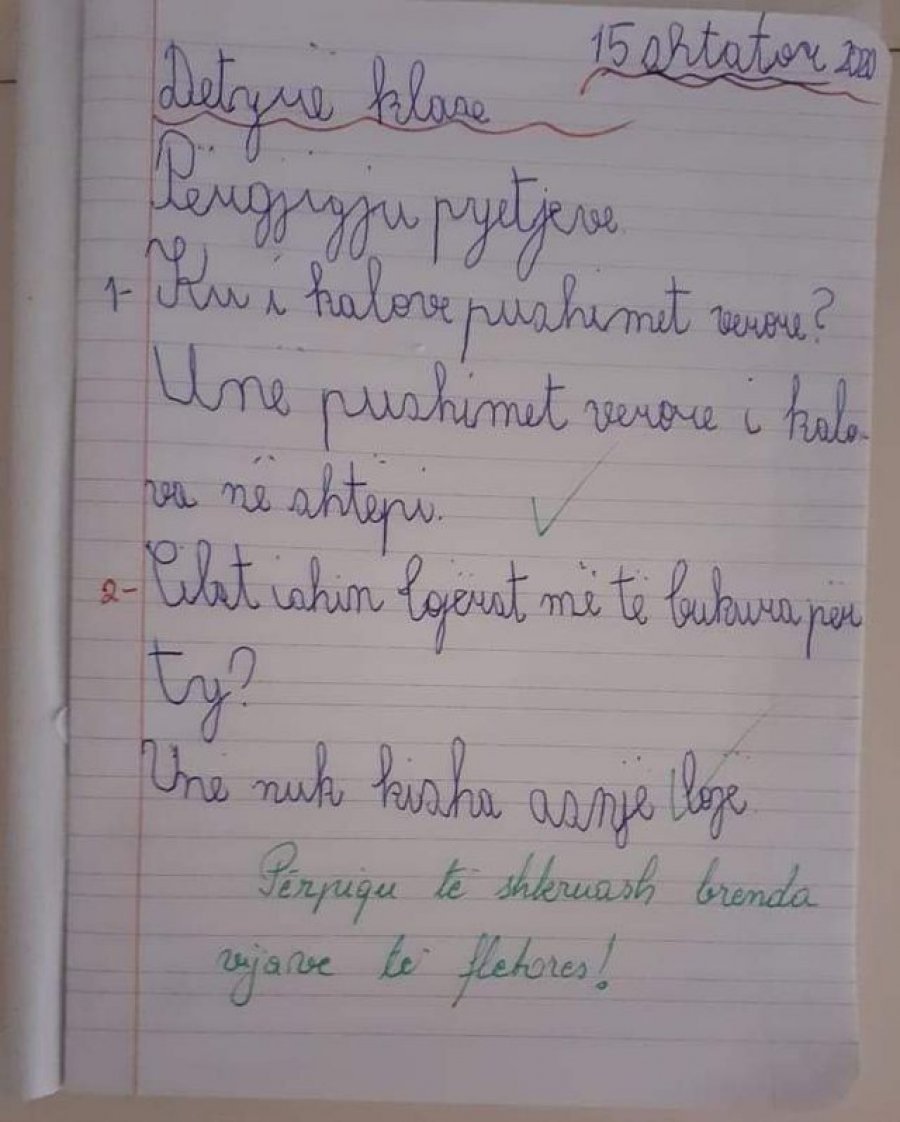 15 shtator 2020
Detyrë klase
Përgjigju pyetjeve.
1- Ku i kalove pushimet verore?
Unë pushimet verore i kalo-
va në shtëpi.
2- Cilat ishin lojërat më të bukura për
ty?
Unë nuk kisha asnjë lojë.
Përpiqu të shkruash brenda
vijave të fletores!